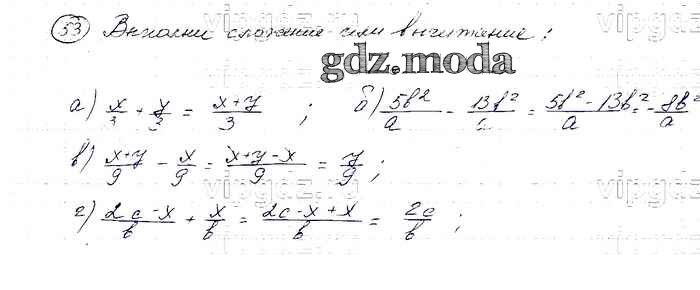 53) Выполни сложение или вычитение:
gdz.moda
а) x/3 + y/3 = (x+y)/3 ; б) 5b²/a - 13b²/a = (5b² - 13b²)/a = -8b²/a
в) (x+y)/9 - x/9 = (x+y-x)/9 = y/9 ;
г) (2c-x)/b + x/b = (2c-x+x)/b = 2c/b ;